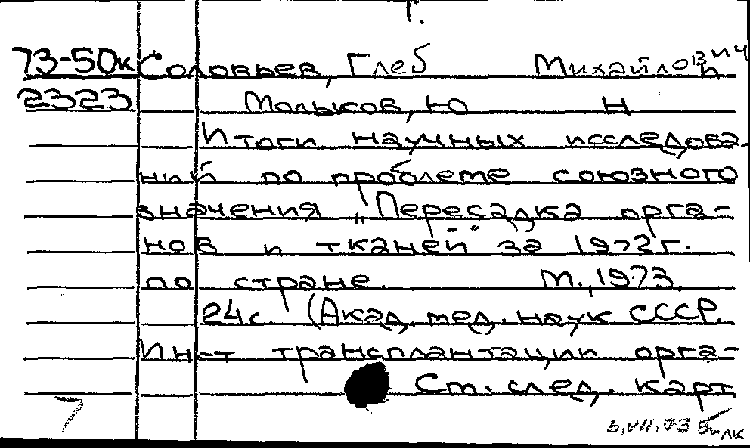 1.
73-50к Соловьев, Глеб Михайлович
2323 Молыков, Ю Н
Итоги научных исследова-
ний по проблеме союзного
значения „Пересадка орга-
нов и тканей" за 1972г.
по стране. М., 1973.
24с. (Акад. мед. наук СССР.
Ин-т трансплантации орга-
См. след. карт